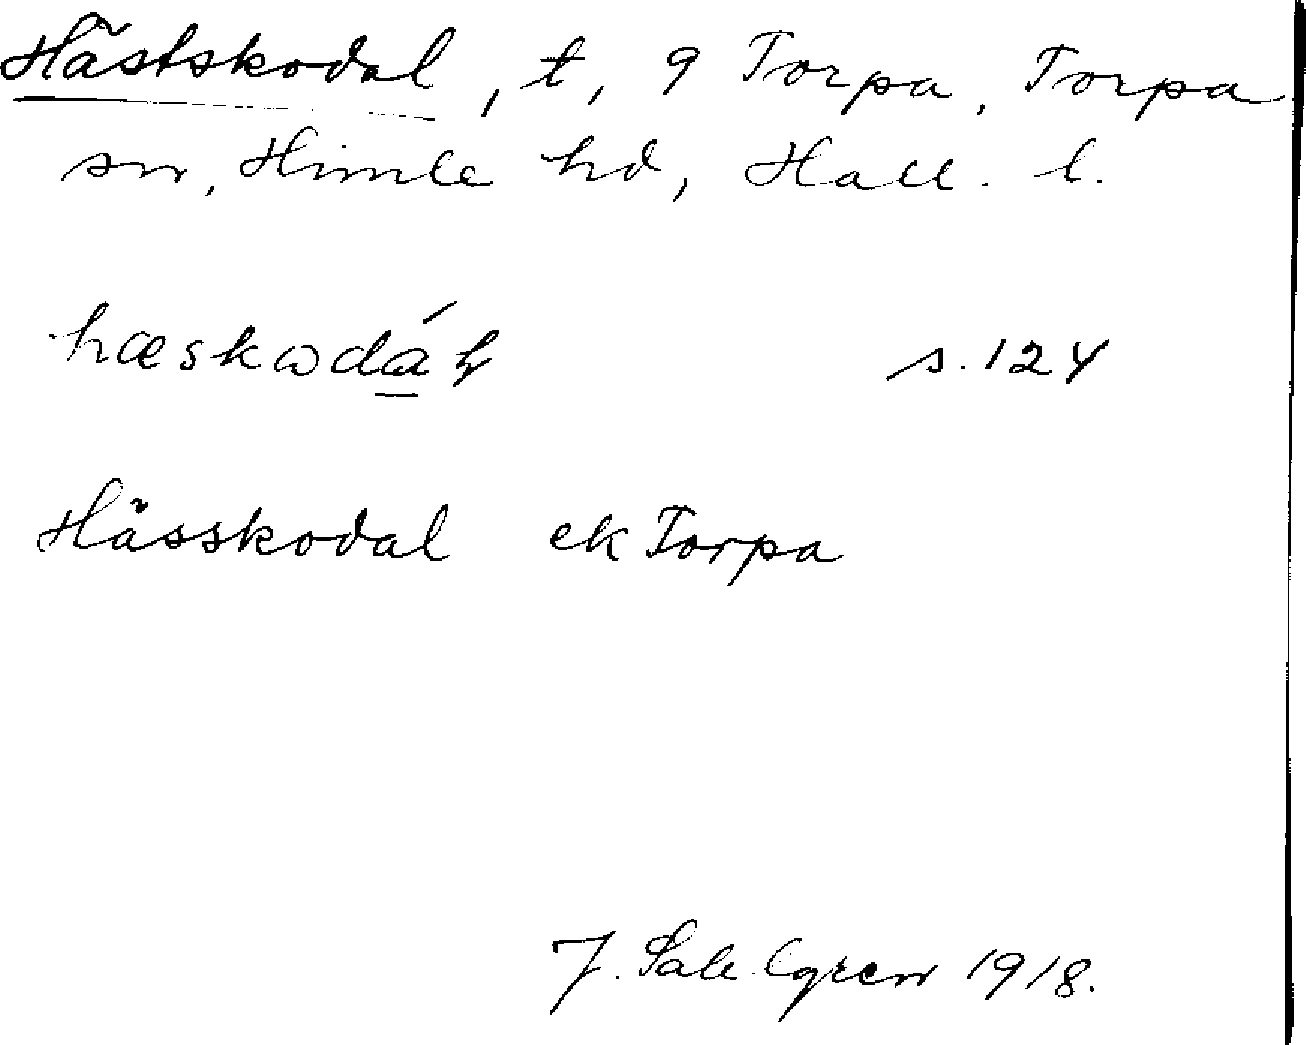 Hästskodal, t, 9 Torpa, Torpa
sn, Himle hd, Hall. l.
hæskωdáḷ s. 124
Hässkodal ek Torpa
J. Sahlgren 1918.